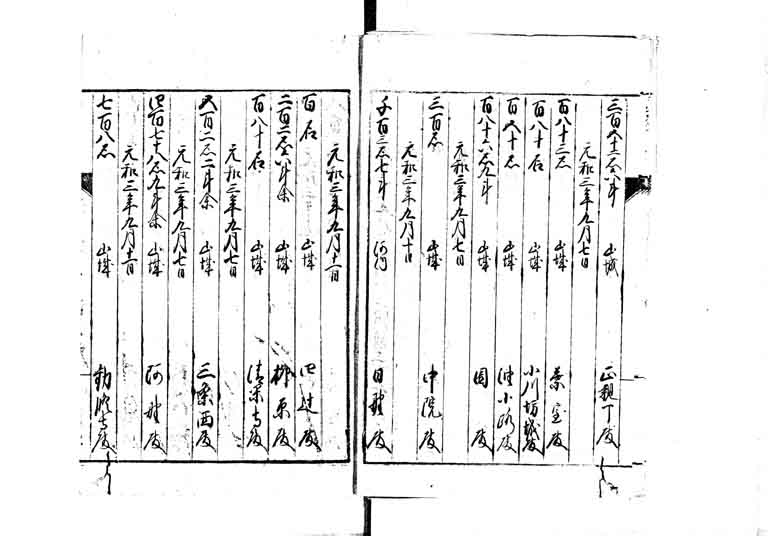 三百五十三石八斗 山城 正親丁殿
元和三年九月七日
百八十三石 山城 葉室殿
百八十石 山城 小川坊城殿
百五十石 山城 油小路殿
百八十六石九斗 山城 園殿
元和三年九月七日
三百石 山城 中院殿
元和三年九月十日
千百三石七斗 河内 日野殿
元和三年九月十一日
百石 山城 四辻殿
二百二石八斗余 山城 柳原殿
百八十石 山城 清閑寺殿
元和三年九月七日
五百二石二斗余 山城 三条西殿
元和三年九月七日
四百七十八石九斗余 山城 阿野殿
元和三年九月十一日
七百八石 山城 勧修寺殿